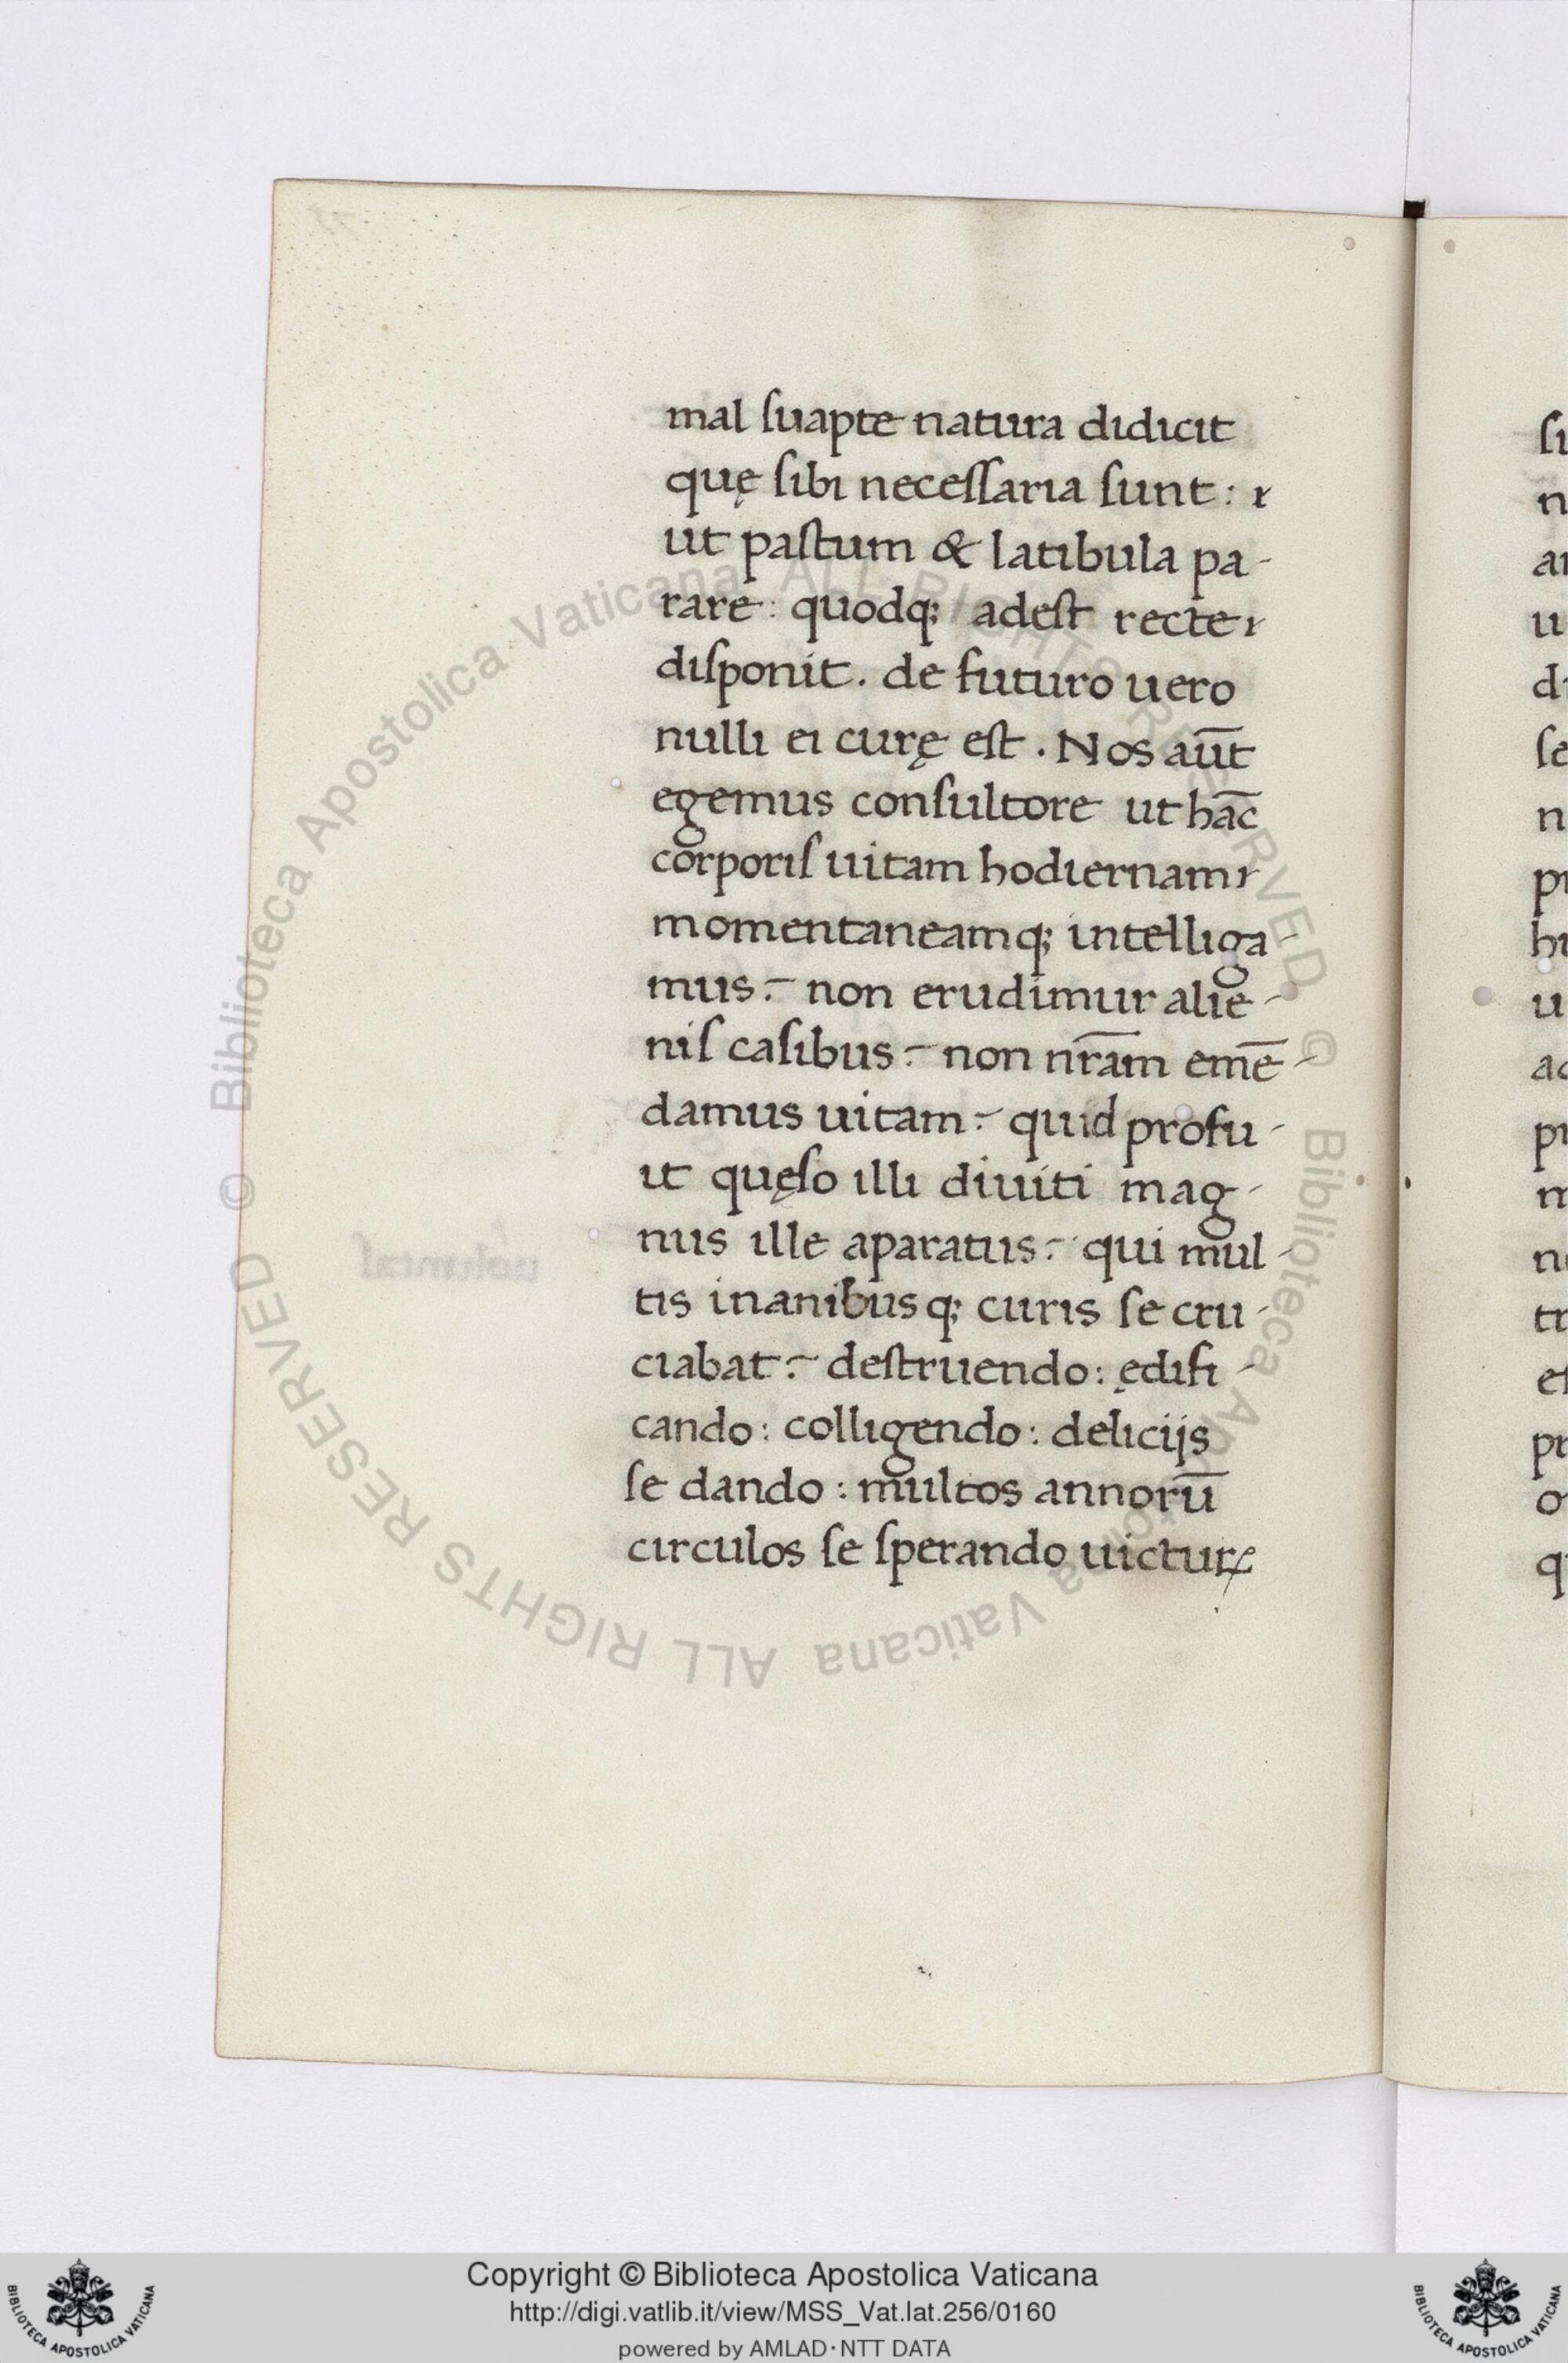 mal ſuapte natura didicit
quę ſibi neceſſaria ſunt :
ut paſtum & latibula pa-
rare : quodq; adeſt recte
diſponit . de futuro uero
nulli ei curę eſt . Nos aut̄
egemus conſultore ut hāc
corporiſ uitam hodiernam
momentaneamq; intelliga-
mus :~ non erudimur alie-
niſ caſibus :~ non nr̄am emē-
damus uitam :~ quid profu-
it quęſo illi diuiti mag-
nus ille aparatus :~ qui mul-
tis inanibusq; curis ſe cru-
ciabat :~ deſtruendo : ędifi-
cando : colligendo : delicijs
ſe dando : multos annorū
circulos ſe ſperando uicturꝝ
ſi
n
ar
u
di
ſe
n
pr
hu
u
ac
pr
m
no
tr
eſ
pr
o
q
© Biblioteca Apostolica Vaticana ALL RIGHTS RESERVED © Biblioteca Apostolica Vaticana ALL RIGHTS RESERVED
Copyright © Biblioteca Apostolica Vaticana
http://digi.vatlib.it/view/MSS_Vat.lat.256/0160
powered by AMLAD·NTT DATA
BIBLIOTECA APOSTOLICA VATICANA
BIBLIOTECA APOSTOLICA VATICANA